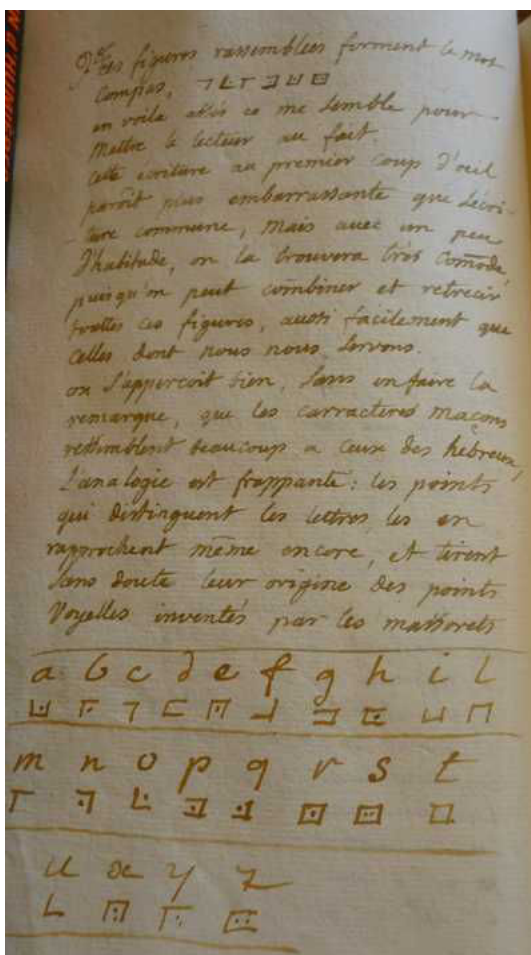 Ces figures rassemblées forment le mot
Compas,
en voila assés ce me semble pour
mettre le lecteur au fait.
Cette ecriture au premier coup d'oeil
paroît plus embarrassante que l'écri-
ture commune, mais avec un peu
d'habitude, on la trouvera très comode,
puisqu'on peut combiner et retrecir
toutes ces figures, aussi facilement que
celles dont nous nous servons.
on s'apperçoit bien, sans en faire la
remarque, que les carracteres maçons
ressemblent beaucoup a ceux des hebreux,
l'analogie est frappante: les points
qui distinguent les lettres les en
rapprochent même encore, et tirent
sans doute leur origine des points
Voyelles inventés par les massorets
a b c d e f g h i l
m n o p q r s t
u x y z